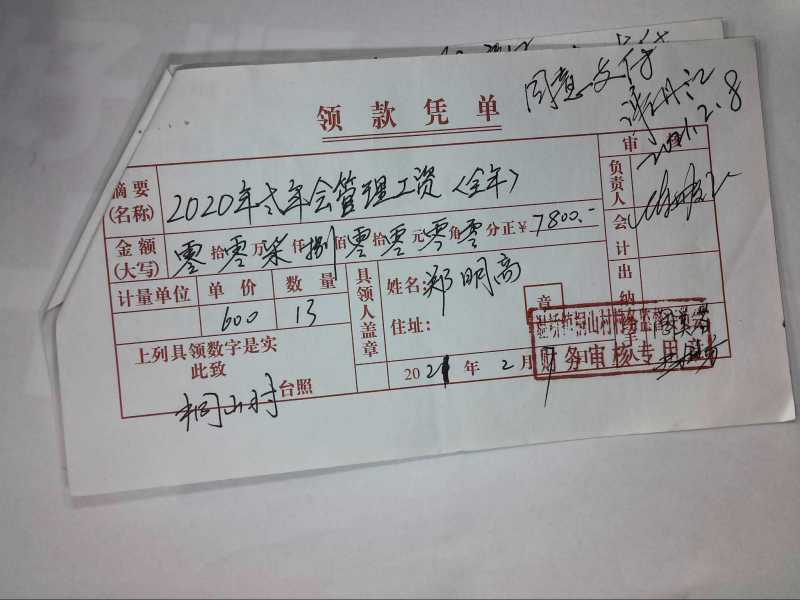 同意支付
2021.2.8
领款凭单
审核
摘要(名称) 2020年弍年会管理工资（全年）
负责人
金额(大写) 零拾零万柒仟捌佰零拾零元零角零分正¥7800.-
会计
计量单位 单价 数量
600 13
具领人盖章
姓名:郑明高
住址:
章
出纳
上列具领数字是实
此致
桐山村台照
2021年2月
财务审核专用